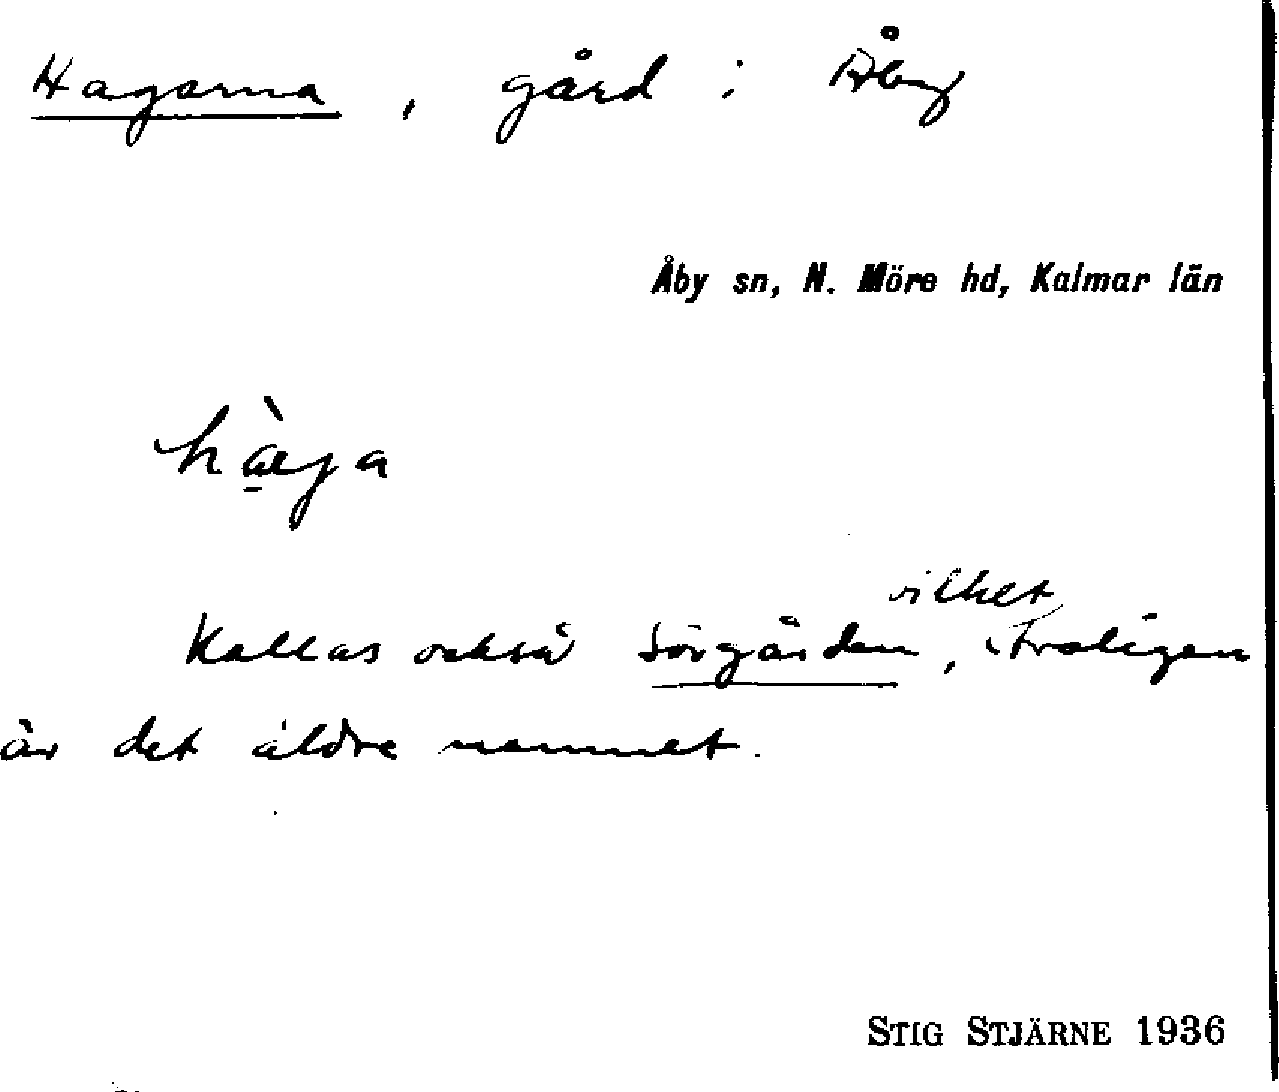 Hagarna, gård i Åby
Åby sn, N. Möre hd, Kalmar län
hàga
vilket
Kallas också Sörgården, troligen
är det äldre namnet.
STIG STJÄRNE 1936